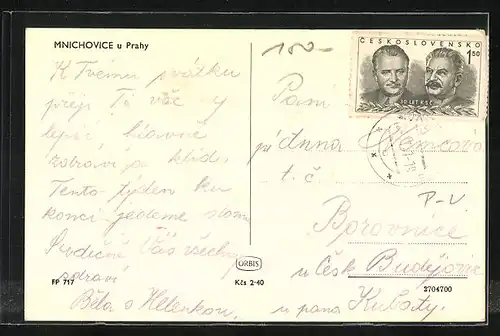 MNICHOVICE u Prahy
150-
ČESKOSLOVENSKO
1.50
30 LET KSČ
K Tvému svátku
přeji Ti vše
lepší, hlavně
zdraví a klid.
Tento týden ku
konci jedeme
Srdečně Vás všechny
zdraví
Běla s Helenkou
Paní
Anna Němcová
t. č.
P-V
Borovnice
u Česk Budějovic
u pana Kubaty
FP 717
ORBIS
Kčs 2·40
2704700